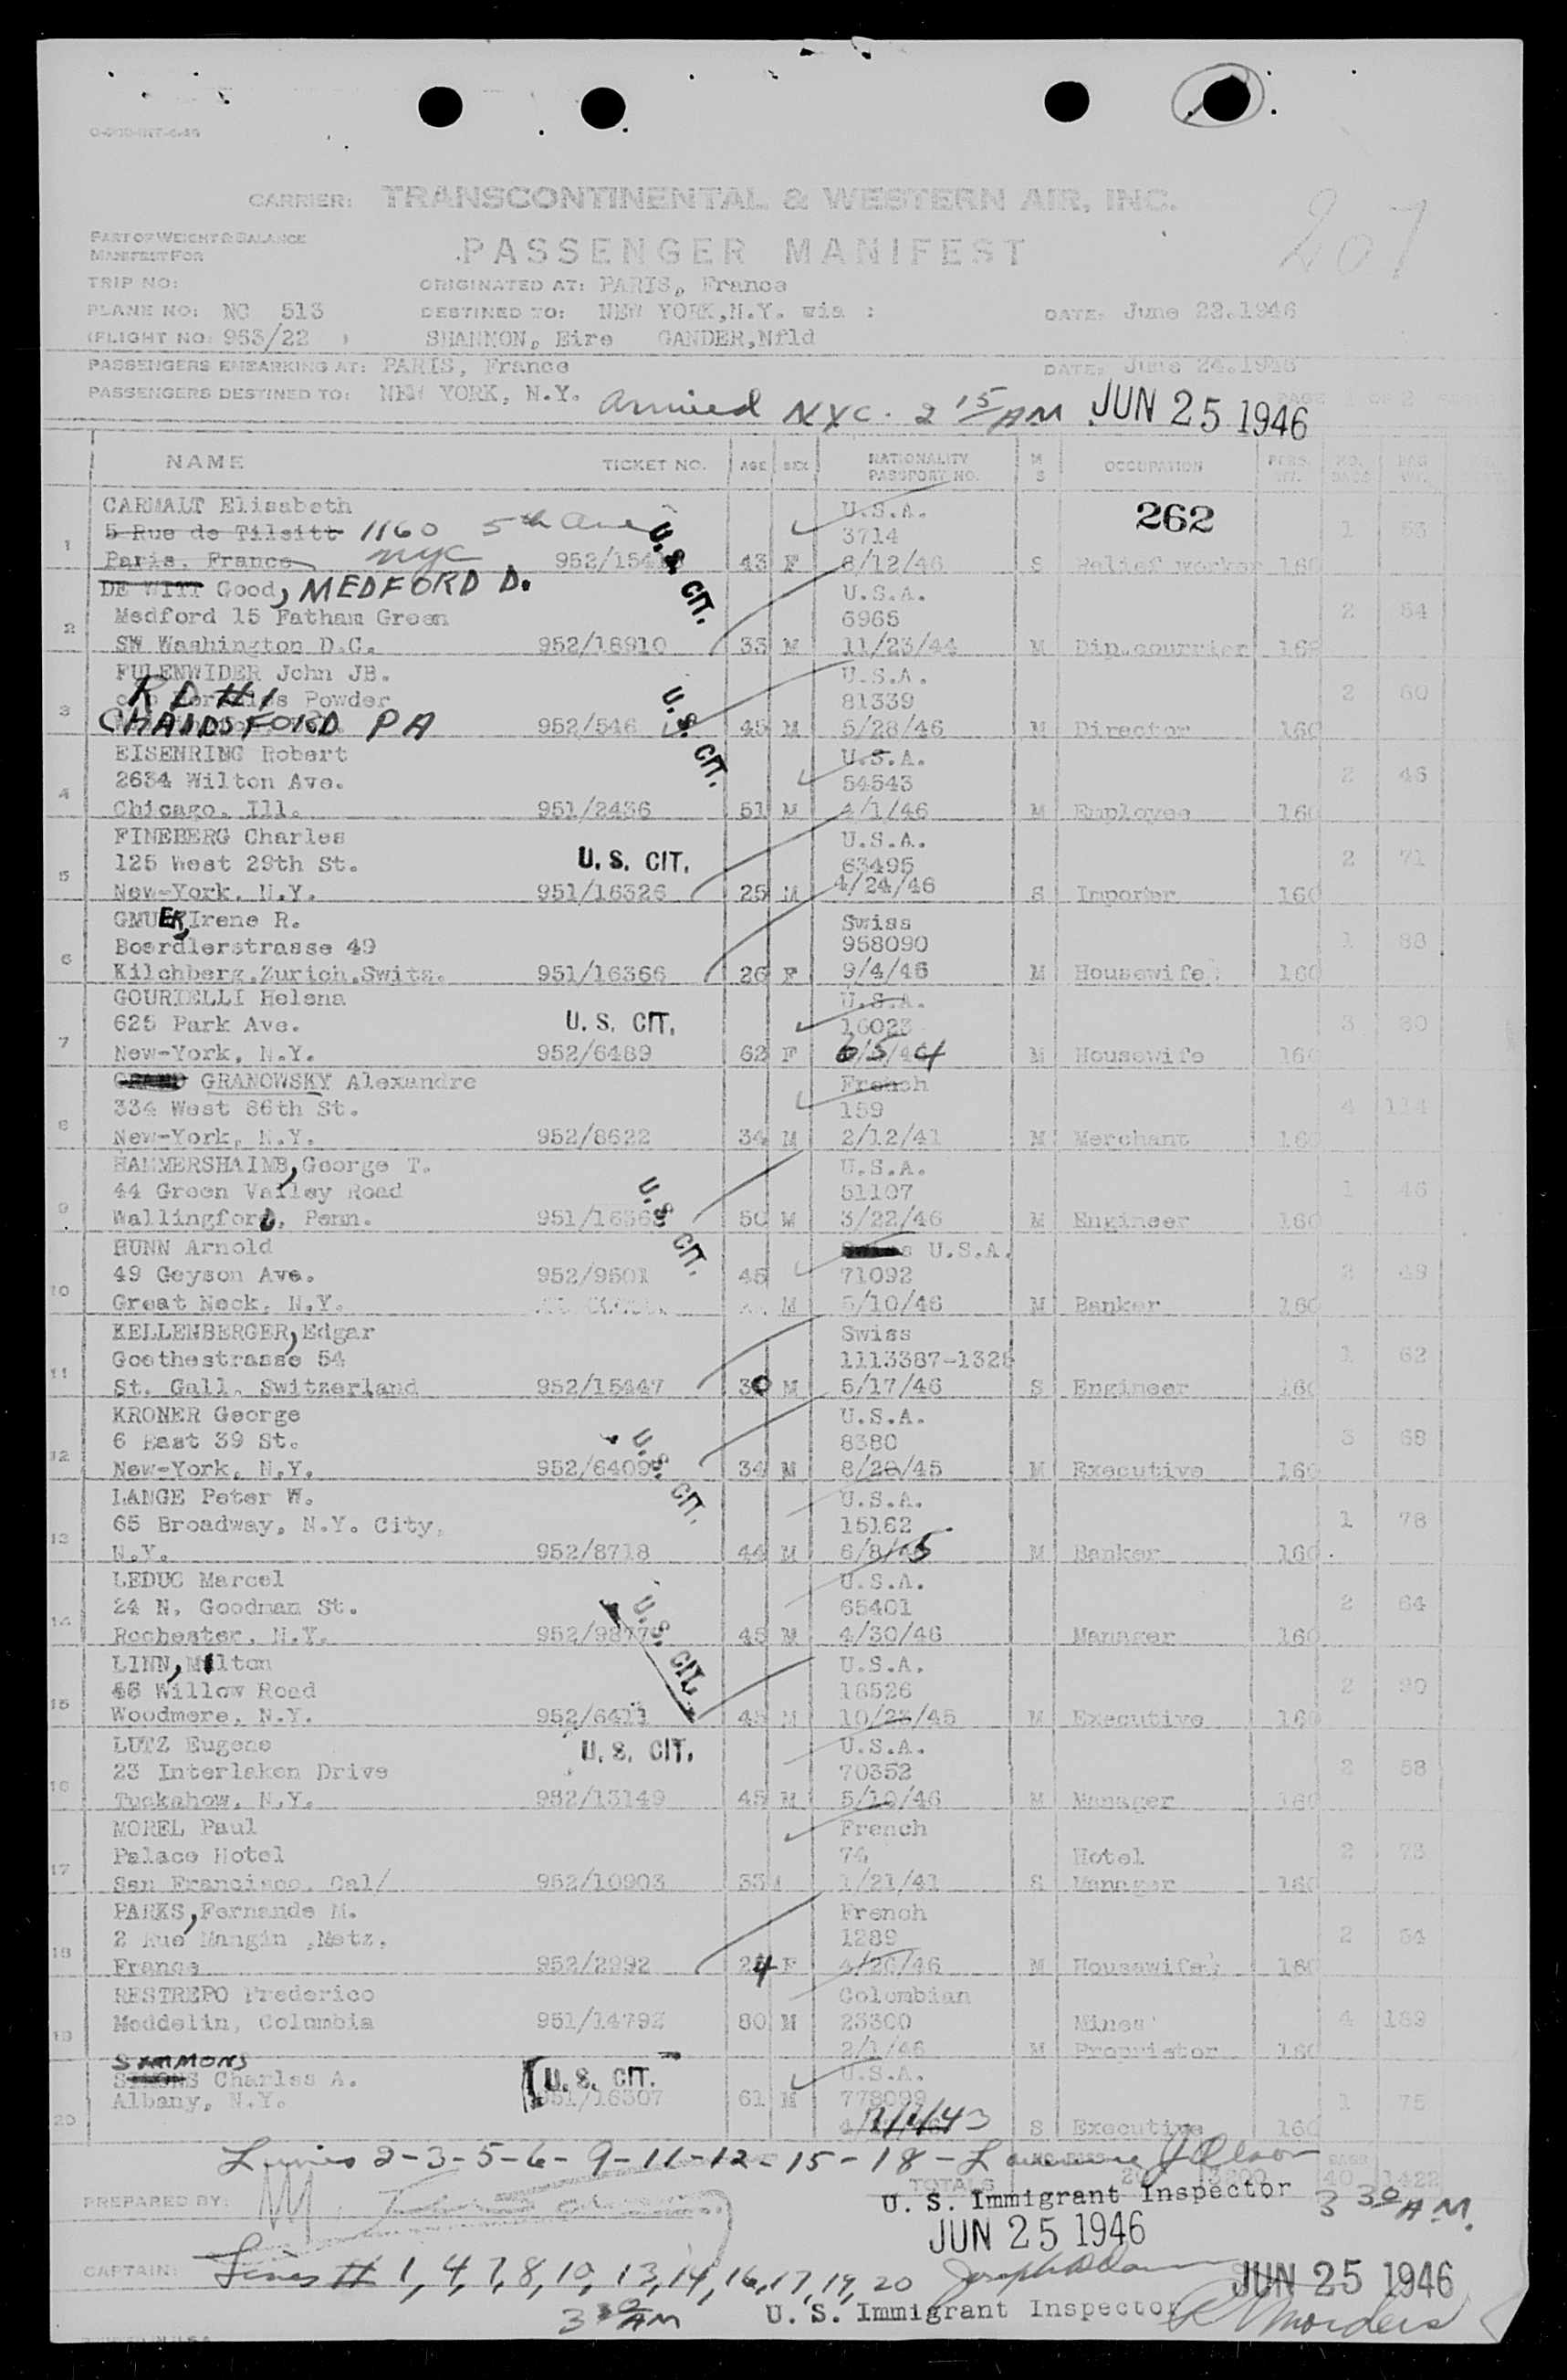 CARRIER: TRANSCONTINENTAL & WESTERN AIR, INC.
207
PART OF WEIGHT & BALANCE
MANIFEST FOR
PASSENGER MANIFEST
TRIP NO: ORIGINATED AT: PARIS, France
PLANE NO: NC 513 DESTINED TO: NEW YORK, N.Y. via : DATE: June 22.1946
(FLIGHT NO: 953/22 ) SHANNON, Eire GANDER, Nfld
PASSENGERS EMBARKING AT: PARIS, France DATE: June 24.1946
PASSENGERS DESTINED TO: NEW YORK, N.Y. Arrived NYC. 2 15 AM JUN 25 1946 PAGE 1 OF 2
NAME TICKET NO. AGE SEX NATIONALITY PASSPORT NO. M S OCCUPATION PERS. WT. NO. BAGS BAG WT.
CARMALT Elisabeth U.S.A. 262
5 Rue de Tilsitt 1160 5th Ave U.S. CIT. 3714 1 53
1 Paris, France NYC 952/1541 43 F 8/12/46 S Relief worker 160
DE WITT Good, MEDFORD D. U.S.A.
Medford 15 Fatham Green 6965 2 54
2 SW Washington D.C. 952/18910 33 M 11/23/44 M Dip.courrier 160
FULENWIDER John JB. U.S.A.
R D #1 Powder U.S. CIT. 81339 2 60
3 CHADDSFORD PA 952/546 45 M 5/28/46 M Director 160
EISENRING Robert U.S.A.
2634 Wilton Ave. 54543 2 46
4 Chicago, Ill. 951/2436 51 M 4/1/46 M Employee 160
FINEBERG Charles U.S.A.
125 West 29th St. U. S. CIT. 63495 2 71
5 New-York, N.Y. 951/16326 25 M 4/24/46 S Importer 160
GMUER, Irene R. Swiss
Boerdlerstrasse 49 958090 1 88
6 Kilchberg,Zurich,Switz. 951/16366 26 F 9/4/46 M Housewife 160
GOURIELLI Helena U.S.A.
625 Park Ave. U. S. CIT. 16023 3 80
7 New-York, N.Y. 952/6489 62 F 6/5/44 M Housewife 160
GRANOWSKY Alexandre French
334 West 86th St. 159 4 114
8 New-York, N.Y. 952/8622 34 M 2/12/41 M Merchant 160
HAMMERSHAIMB, George T. U.S.A.
44 Green Valley Road U.S. CIT. 51107 1 46
9 Wallingford, Penn. 951/1636 50 M 3/22/46 M Engineer 160
HUNN Arnold U.S.A.
49 Geyson Ave. 952/9501 45 71092 2 49
10 Great Neck, N.Y. M 5/10/46 M Banker 160
KELLENBERGER, Edgar Swiss
Goethestrasse 54 1113387-1328 1 62
11 St. Gall, Switzerland 952/15447 30 M 5/17/46 S Engineer 160
KRONER George U.S.A.
6 East 39 St. U.S. CIT. 8380 3 68
12 New-York, N.Y. 952/6409 34 M 8/28/45 M Executive 160
LANGE Peter W. U.S.A.
65 Broadway, N.Y. City, 15162 1 78
13 N.Y. 952/8718 44 M 6/8/45 M Banker 160
LEDUC Marcel U.S.A.
24 N. Goodman St. U.S. CIT. 65401 2 64
14 Rochester, N.Y. 952/9877 45 M 4/30/46 Manager 160
LINN, Milton U.S.A.
46 Willow Road 16526 2 90
15 Woodmere, N.Y. 952/6411 45 M 10/23/45 M Executive 160
LUTZ Eugene U. S. CIT. U.S.A.
23 Interlaken Drive 70352 2 58
16 Tuckahow, N.Y. 952/13149 45 M 5/10/46 M Manager 160
MOREL Paul French
Palace Hotel 74 Hotel 2 73
17 San Francisco, Cal/ 952/10903 33 1/21/41 S Manager 160
PARKS, Fernande M. French
2 Rue Mangin ,Metz, 1289 2 54
18 France 952/2992 24 F 4/26/46 M Housewife 160
RESTREPO Frederico Colombian
19 Meddelin, Colombia 951/14792 80 M 23300 Mines 4 189
2/1/46 M Proprietor 160
SIMMONS
SIMONS Charles A. U. S. CIT. U.S.A.
Albany, N.Y. 951/16307 61 M 778099 1 75
20 S Executive 160
Lines 2-3-5-6-9-11-12-15-18-
TOTALS 20 3200 BAGS 40 1422
PREPARED BY: U. S. Immigrant Inspector 3 30 A.M.
JUN 25 1946
CAPTAIN: Lines # 1, 4, 7, 8, 10, 13, 14, 16, 17, 19, 20 JUN 25 1946
3 30 AM U. S. Immigrant Inspector